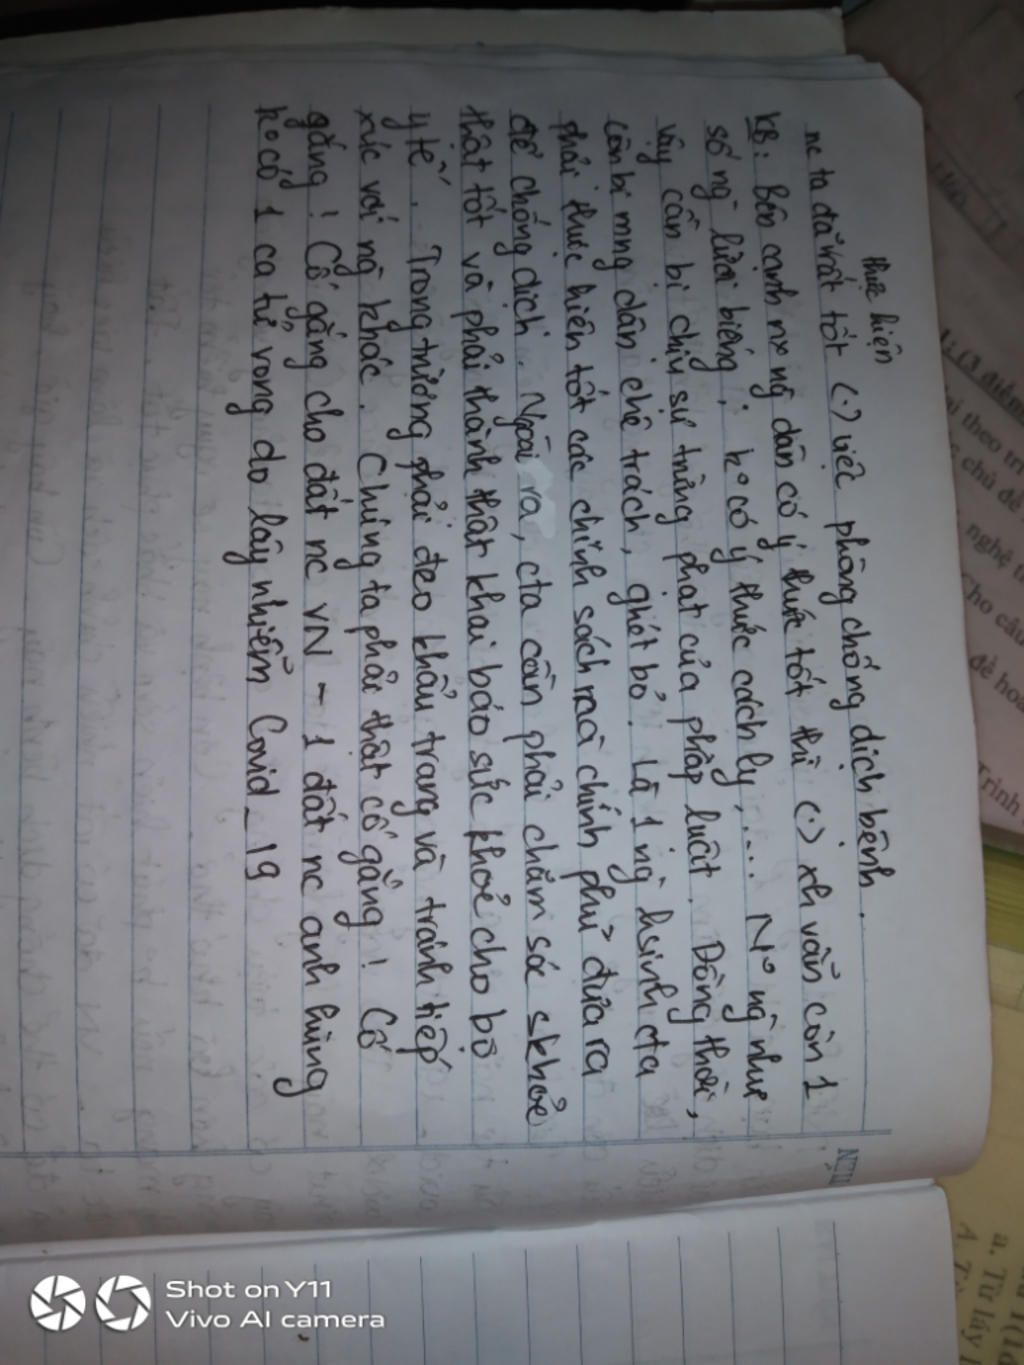 thực hiện
nc ta đã rất tốt (.) việc phòng chống dịch bệnh.
KB: Bên cạnh nx ng dân có ý thức tốt thì (.) xh vẫn còn 1
số ng lười biếng, ko có ý thức cách ly,.... No ng như
vậy cần bị chịu sự trừng phạt của pháp luật. Đồng thời,
còn bị mng dân chê trách, ghét bỏ. Là 1 ng hsinh cta
phải thực hiện tốt các chính sách mà chính phủ đưa ra
để chống dịch. Ngoài ra, cta cần phải chăm sóc skhoẻ
thật tốt và phải thành thật khai báo sức khoẻ cho bộ
y tế. Trong trường phải đeo khẩu trang và tránh tiếp
xúc với ng khác. Chúng ta phải thật cố gắng! Cố
gắng! Cố gắng cho đất nc VN - 1 đất nc anh hùng
ko có 1 ca tử vong do lây nhiễm Covid_19
(3 điểm
theo
chủ đề
nghệ
Cho câu
đề
Trình
a. Từ láy
Shot on Y11
Vivo AI camera